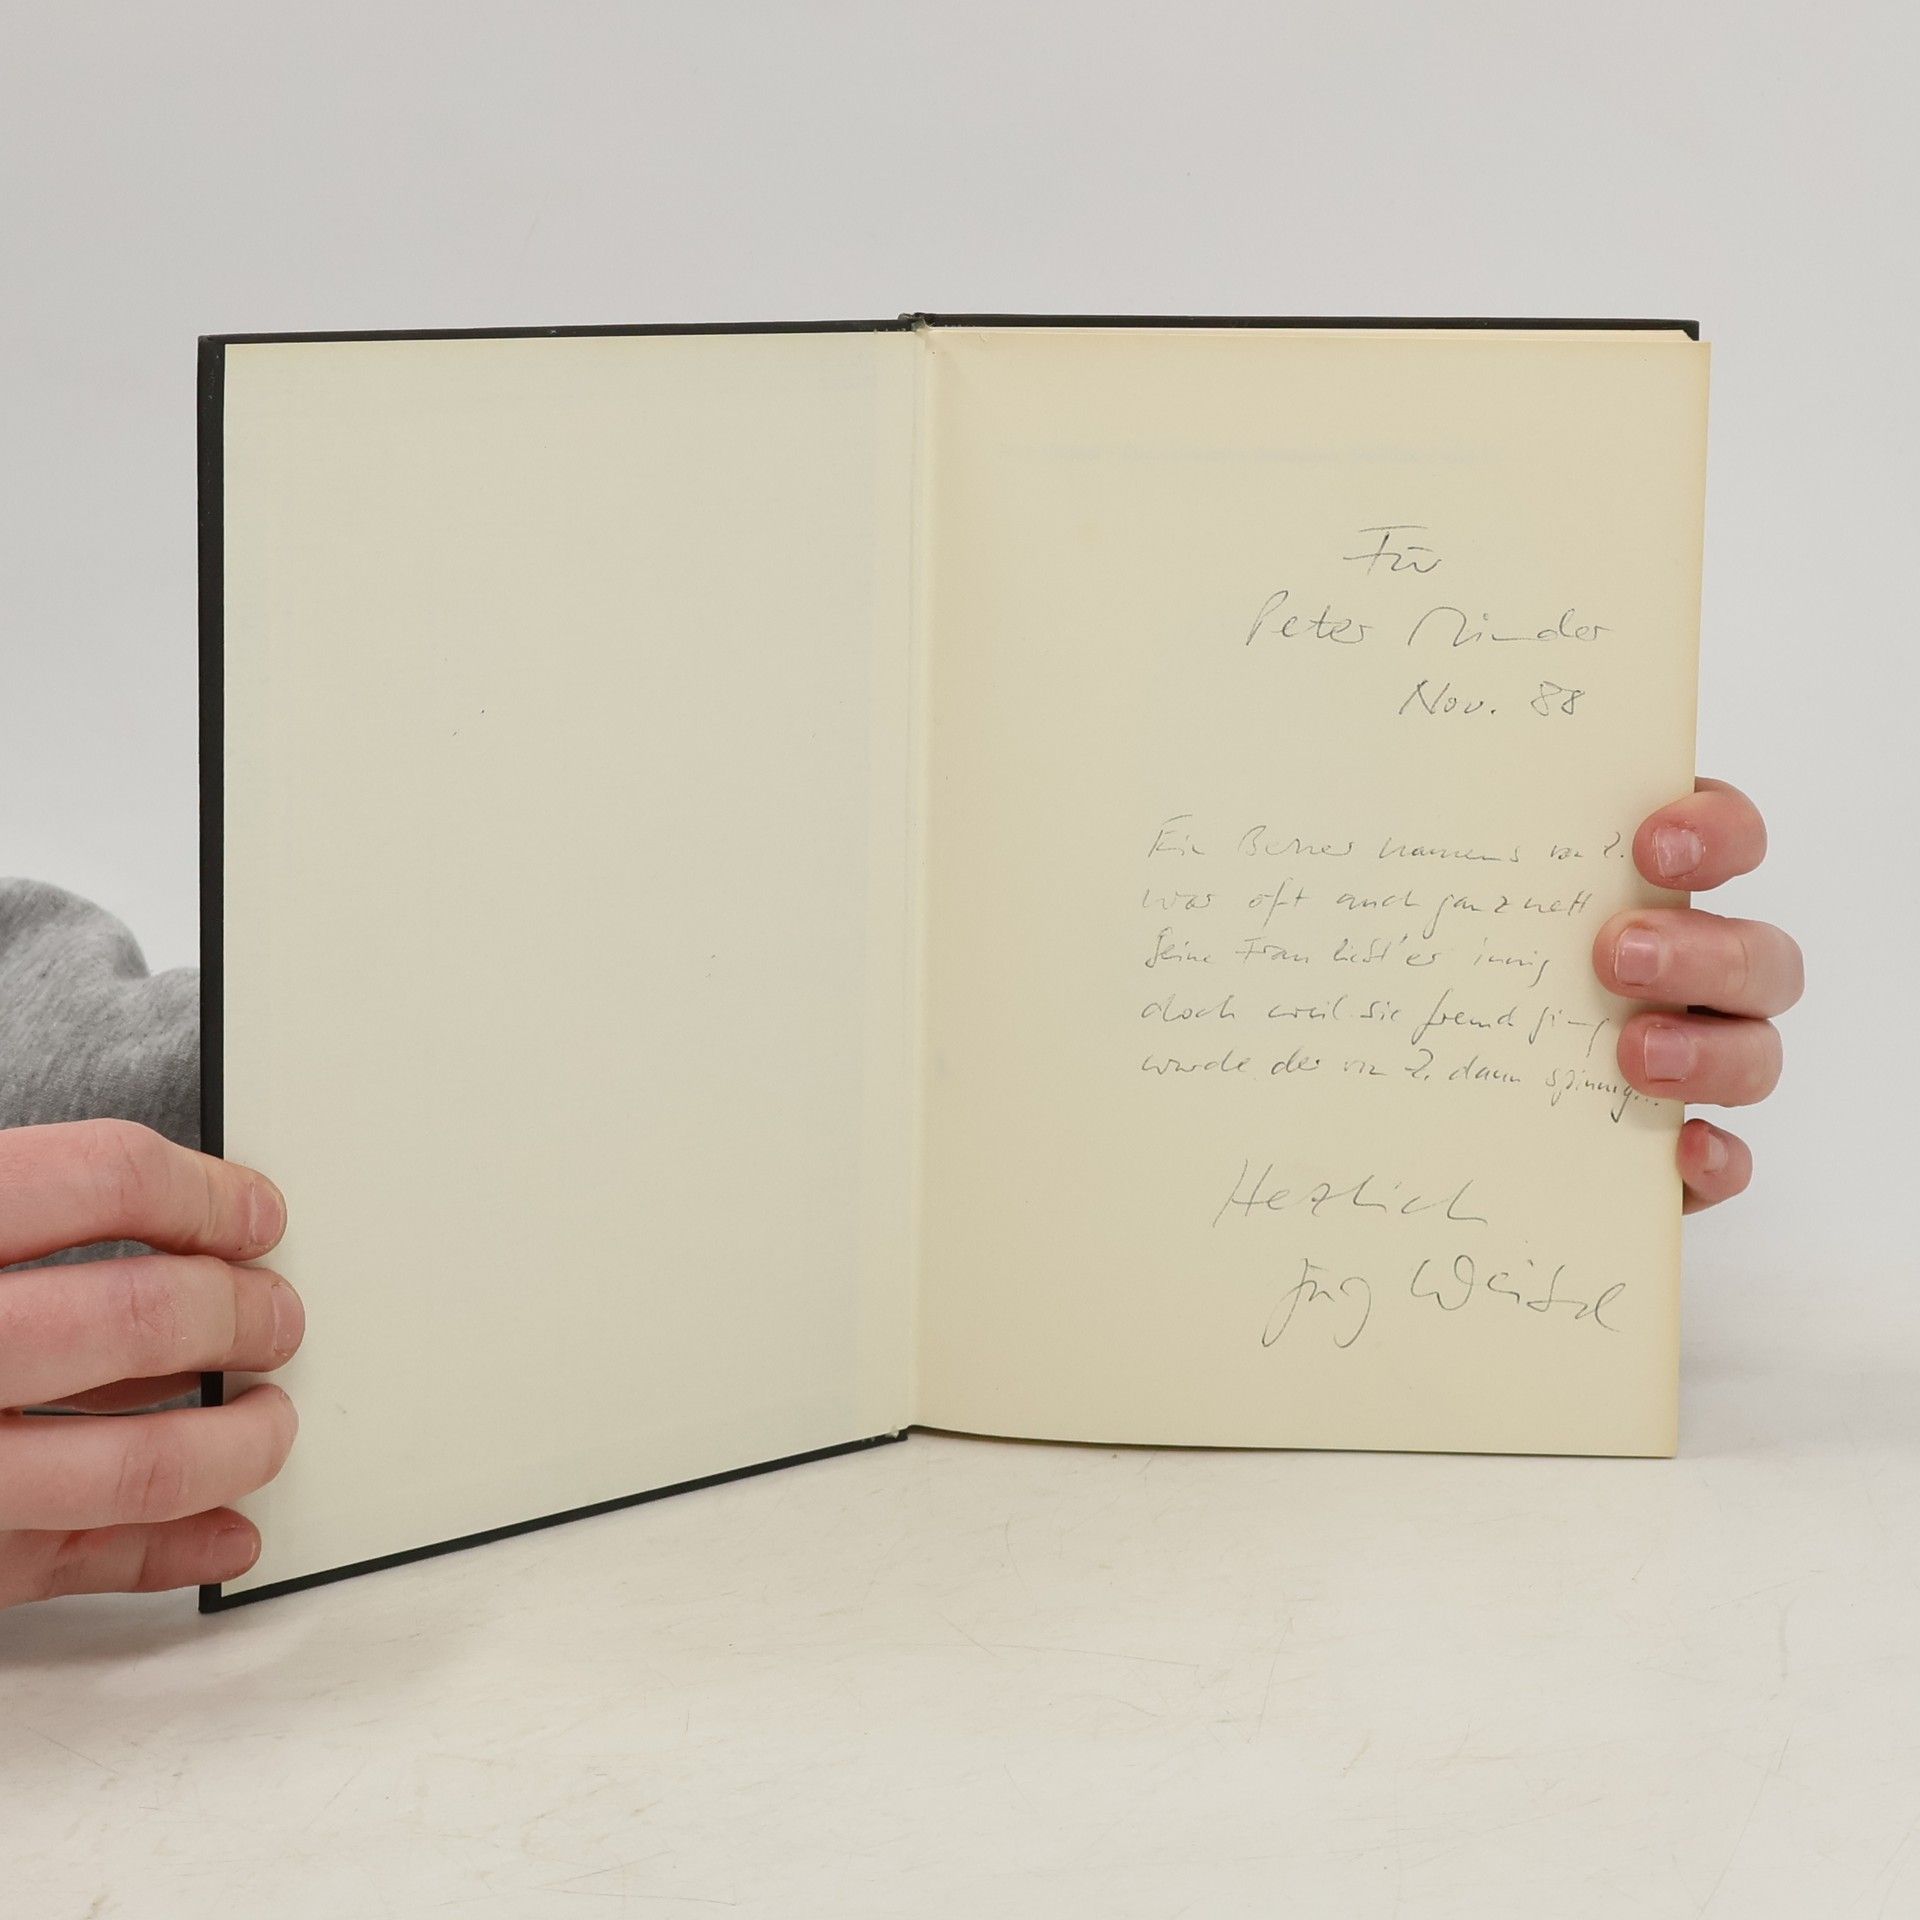 Für
Peter Minder
Nov. 88
Ein Berner namens von Z.
war oft auch ganz nett
Seine Frau liebt' er innig
doch weil sie fremd ging
wurde der von Z. dann spinnig...
Herzlich
Jürg Weibel